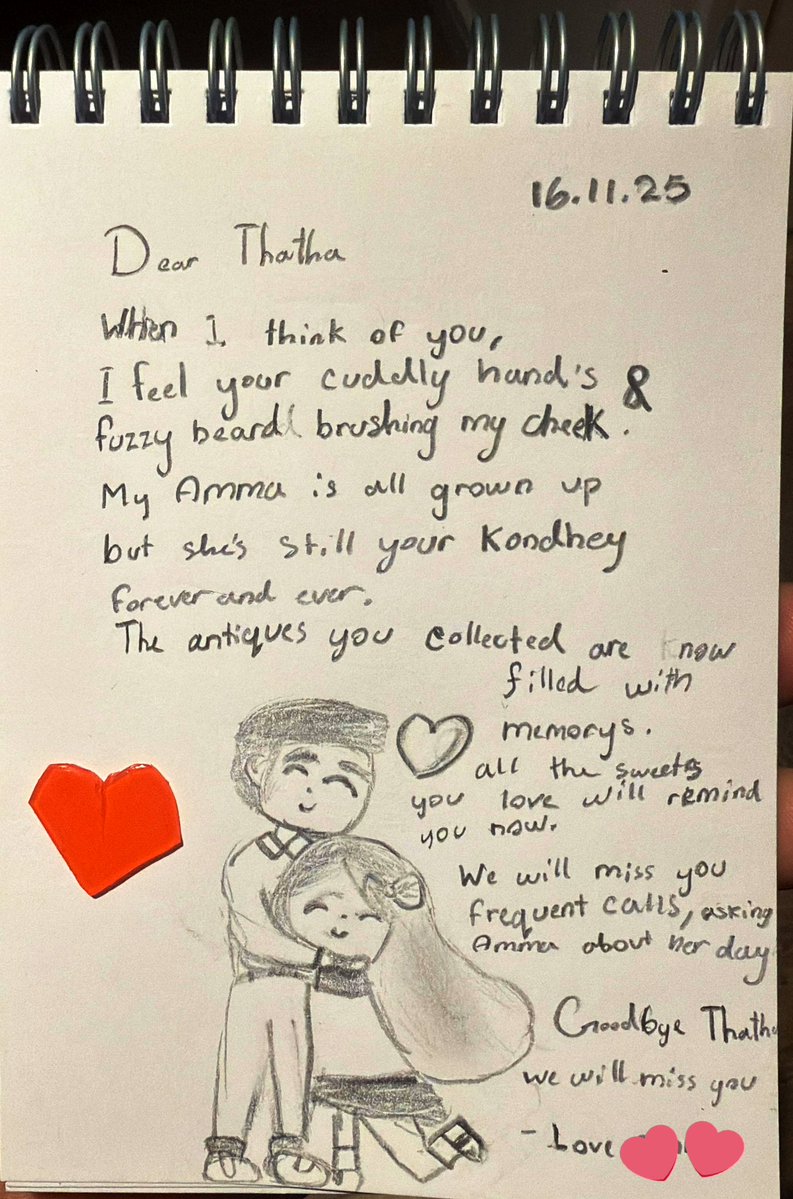 16.11.25
Dear Thatha
When I think of you,
I feel your cuddly hand's &
fuzzy beard brushing my cheek.
My Amma is all grown up
but she's still your Kondhey
forever and ever.
The antiques you collected are now
filled with
memorys.
all the sweets
you love will remind
you now.
We will miss you
frequent calls, asking
Amma about her day
Goodbye Thatha
we will miss you
- Love